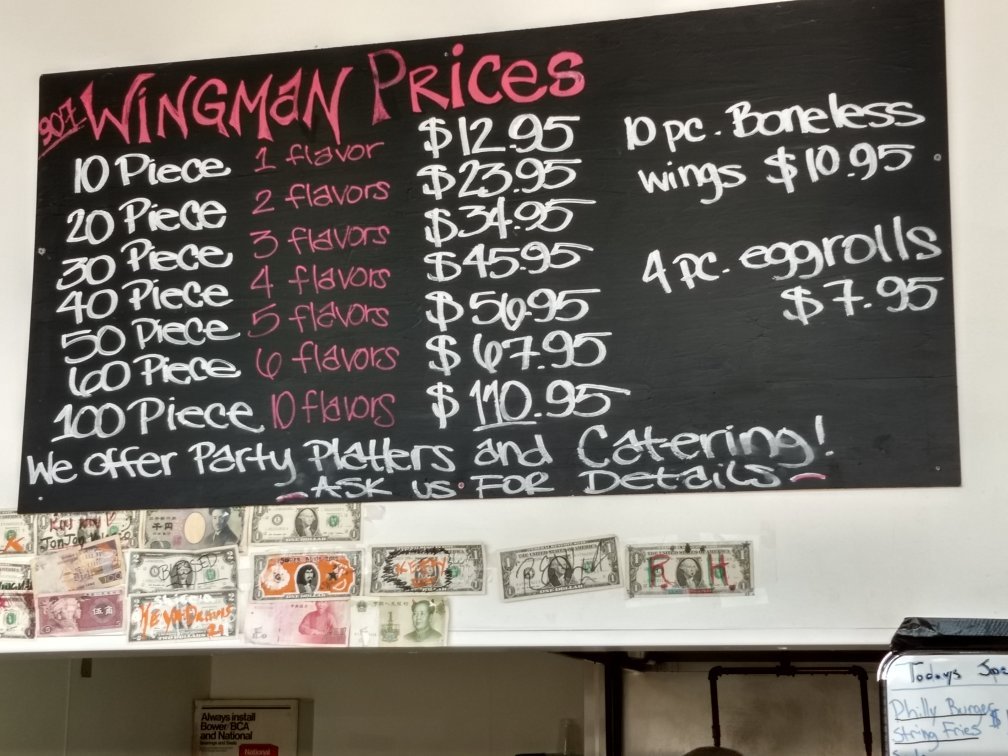 907 WINGMAN PRICES
10 Piece 1 flavor $12.95
20 Piece 2 flavors $23.95
30 Piece 3 flavors $34.95
40 Piece 4 flavors $45.95
50 Piece 5 flavors $56.95
60 Piece 6 flavors $67.95
100 Piece 10 flavors $110.95
10 pc. Boneless
wings $10.95
4 pc. eggrolls
$7.95
We offer Party Platters and Catering!
- ASK US FOR DETAILS -
JonJon
千円
BLESSED
伍角
KEVIN
R H
ONE DOLLAR
TWO DOLLARS
Always install
Bower/BCA
and National
National
Todays
Philly Burger $
String Fries